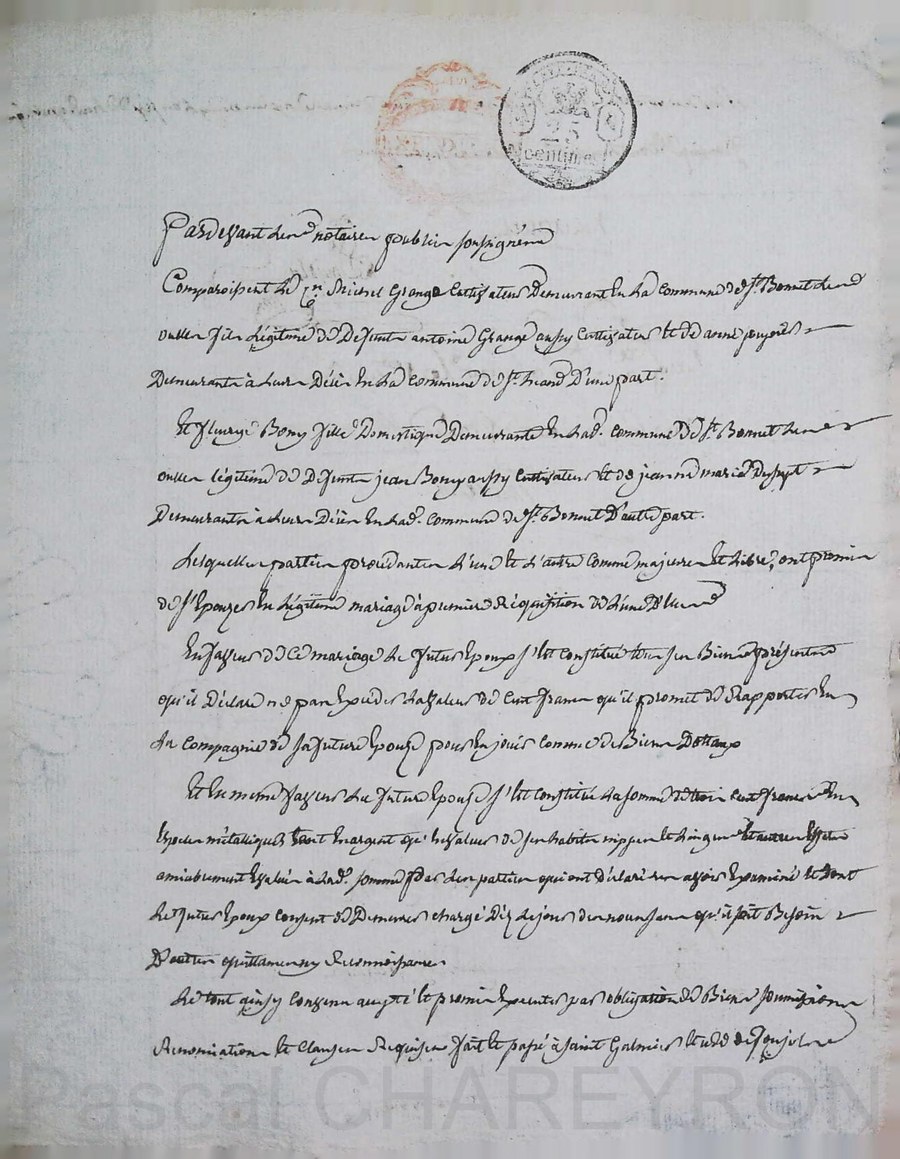 25
centimes
Pardevant les notaires publics soussignés
Comparoissent le Cn Michel Grange Cultivateur Demeurant En la Commune de St Bonnet Les
oulles fils Légitime de Defunt antoine Grange aussy Cultivateur Et de anne
Demeurants à Leur Décès En La Commune de St D'une part.
Et fleurye Bony fille Domestique Demeurante En lad. commune de St Bonnet Les
oulles légitime de Defunt jean Bony aussy Cultivateur Et de jeanne marie
Demeurants à Leur Décès En Lad. Commune de St Bonnet D'autre part.
Lesquelles parties procedantes L'une Et L'autre Comme majeures Et Libres, ont promis
de s'Epouser En Légitime mariage à premiere Réquisition de L'une D'elles
En faveur de Ce mariage Le futur Epoux s'Est Constitué tous ses Biens présents
qu'il Déclare ne pas Exceder La valeur de Cent francs qu'il promet de Rapporter En
La Compagnie de sa future Epouse pour En jouir Comme de Biens Dotaux
Et En meme faveur La future Epouse s'Est Constitué La somme de trois Cent francs En
Especes métalliques soit En argent ou En valeur de ses habits nippes Et Linges Et autres Effets
amiablement Evalués à Lad. somme par Les parties qui ont déclaré Les avoir Examiné Et Dont
Le futur Epoux Consent de Demeurer Chargé Dès Le jour des nopces sans qu'il soit Besoin
D'autres quittances ny Reconnoissances
Le tout ainsy Convenu accepté Et promis Executer par obligation de Biens soumissions
Renonciations Et Clauses Requises fait Et passé à Saint Galmier Etude de
Pascal CHAREYRON